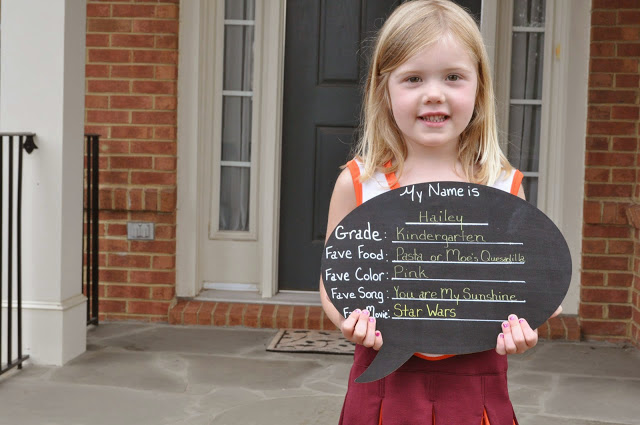 My Name is
Hailey
Grade: Kindergarten
Fave Food: Pasta or Moe's Quesadilla
Fave Color: Pink
Fave Song: You are My Sunshine
Movie: Star Wars